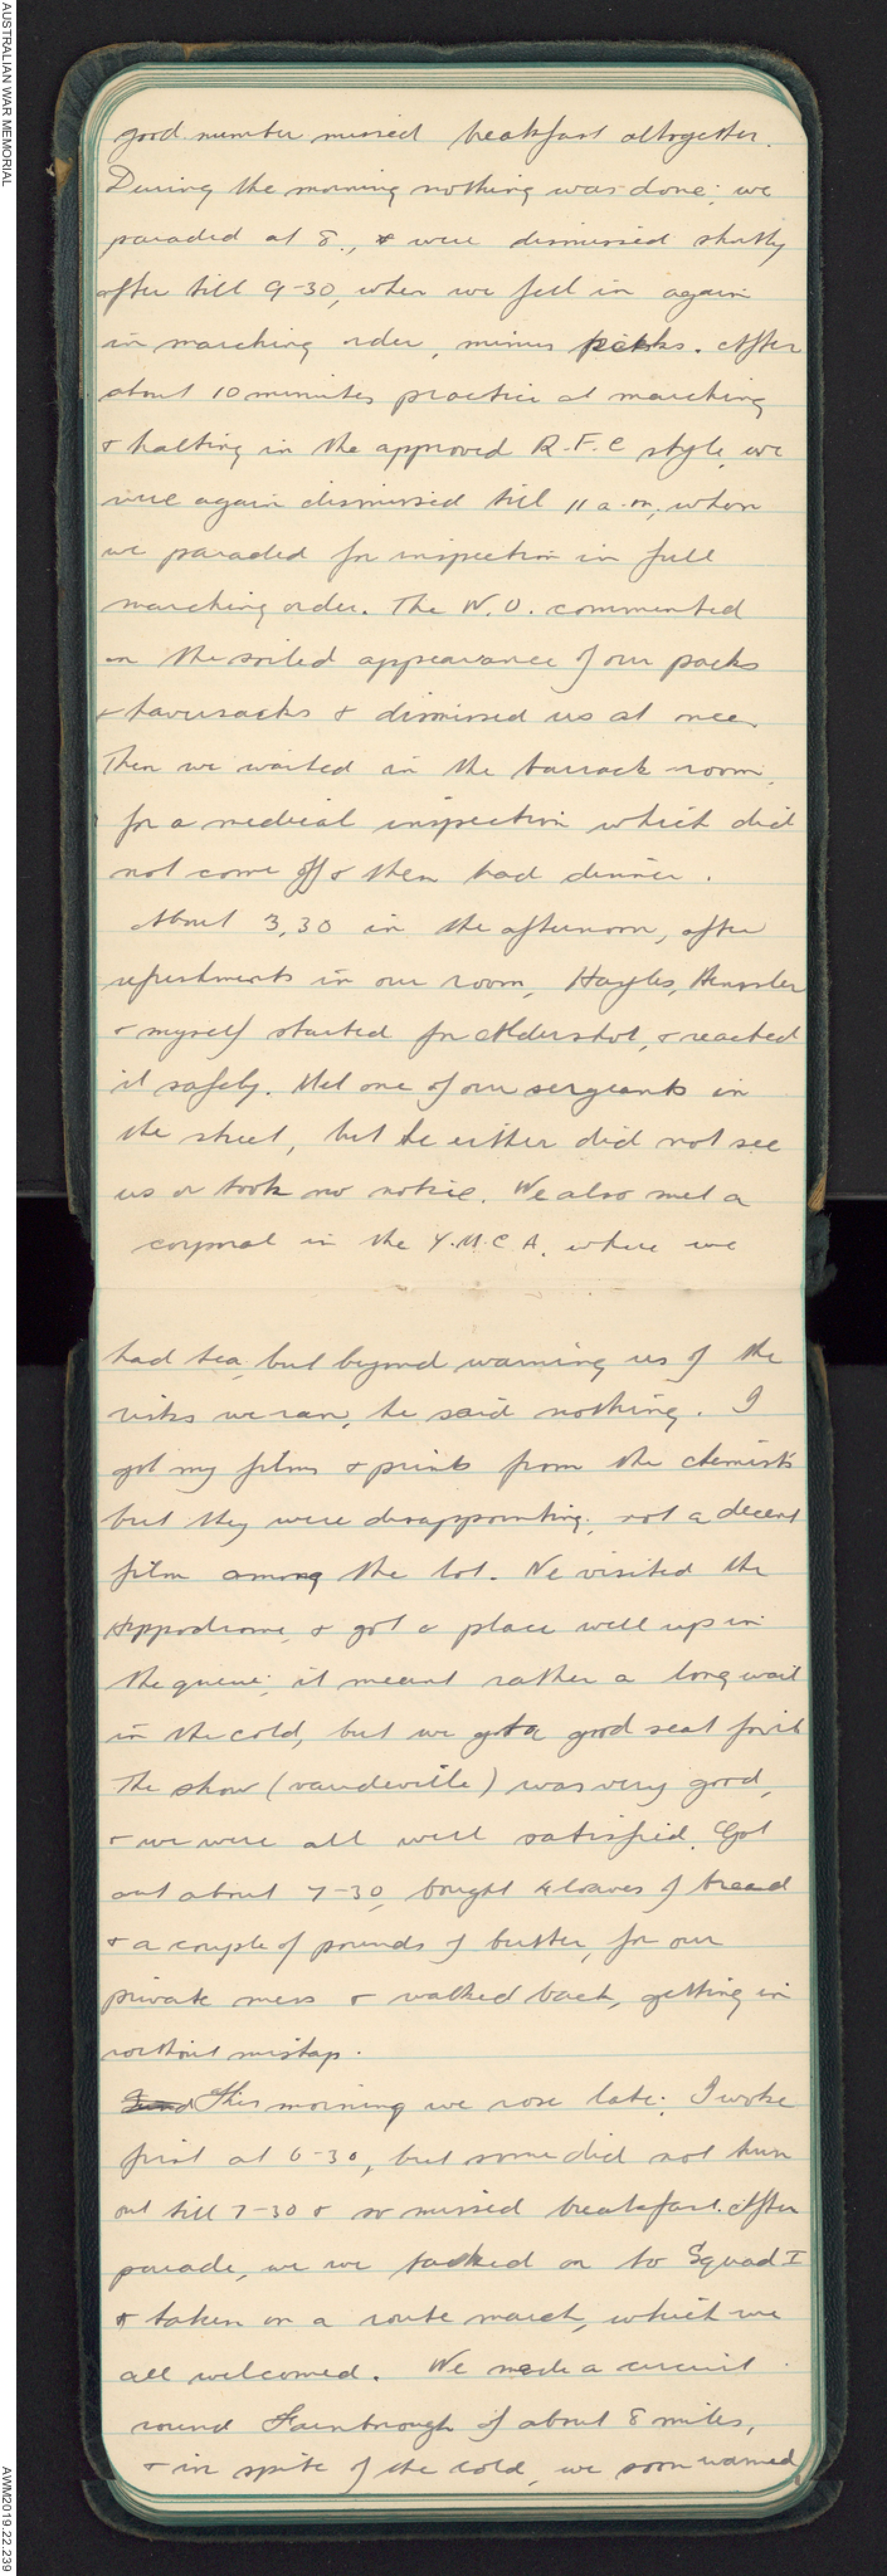 AUSTRALIAN WAR MEMORIAL
good number missed breakfast altogether.
During the morning nothing was done; we
paraded at 8., & were dismissed shortly
after till 9-30, when we fell in again
in marching order, minus packs. After
about 10 minutes practice at marching
& halting in the approved R.F.C style, we
were again dismissed till 11 a.m, when
we paraded for inspection in full
marching order. The W.O. commented
on the soiled appearance of our packs
& haversacks & dismissed us at once.
Then we waited in the barrack-room,
for a medical inspection which did
not come off & then had dinner.
About 3,30 in the afternoon, after
refreshments in our room, Hayles,
& myself started for Aldershot, & reached
it safely. Met one of our sergeants in
the street, but he either did not see
us or took no notice. We also met a
corporal in the Y.M.C.A. where we
had tea, but beyond warning us of the
risks we ran, he said nothing. I
got my films & prints from the chemist's
but they were disappointing; not a decent
film among the lot. We visited the
Hippodrome, & got a place well up in
the queue; it meant rather a long wait
in the cold, but we got a good seat for it
The show (vaudeville) was very good,
& we were all well satisfied. Got
out about 7-30, bought 4 loaves of bread
& a couple of pounds of butter, for our
private mess & walked back, getting in
without mishap.
This morning we rose late; I woke
first at 6-30, but some did not turn
out till 7-30 & so missed breakfast. After
parade, we we tacked on to Squad I
& taken on a route march, which we
all welcomed. We made a circuit
round Farnborough of about 8 miles,
& in spite of the cold, we soon warmed,
AWM2019.22.239